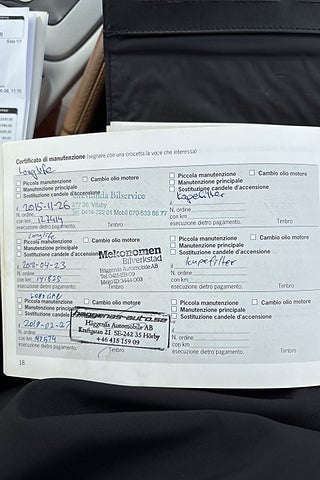 Certificato di manutenzione (segnare con una crocetta la voce che interessa)
Longlife
Piccola manutenzione
Cambio olio motore
Manutenzione principale
Sostituzione candele d'accensione
Bilservice
il 2015-11-26
277 35 Vitaby
N. ordine
Tel 0454-722 01 Mobil 070-533 86 77
con km
esecuzione dietro pagamento.
Timbro
Piccola manutenzione
Cambio olio motore
Manutenzione principale
Sostituzione candele d'accensione
Kupefilter
il
N. ordine
con km
esecuzione dietro pagamento.
Timbro
Longlife
Piccola manutenzione
Cambio olio motore
Manutenzione principale
Sostituzione candele d'accensione
Mekonomen
Bilverkstad
Häggenäs Automobile AB
N. ordine
con km
esecuzione dietro pagamento.
Timbro
Piccola manutenzione
Cambio olio motore
Manutenzione principale
Sostituzione candele d'accensione
kupefilter
il
N. ordine
con km
esecuzione dietro pagamento.
Timbro
Longlife
Piccola manutenzione
Cambio olio motore
Manutenzione principale
Sostituzione candele
haggenas-auto.se
Häggenäs Automobile AB
Kraftgatan 21 SE-242 35 Hörby
+46 415 159 09
N. ordine
con km
esecuzione dietro pagamento.
Timbro
Piccola manutenzione
Cambio olio motore
Manutenzione principale
Sostituzione candele d'accensione
il
N. ordine
con km
esecuzione dietro pagamento.
Timbro
18